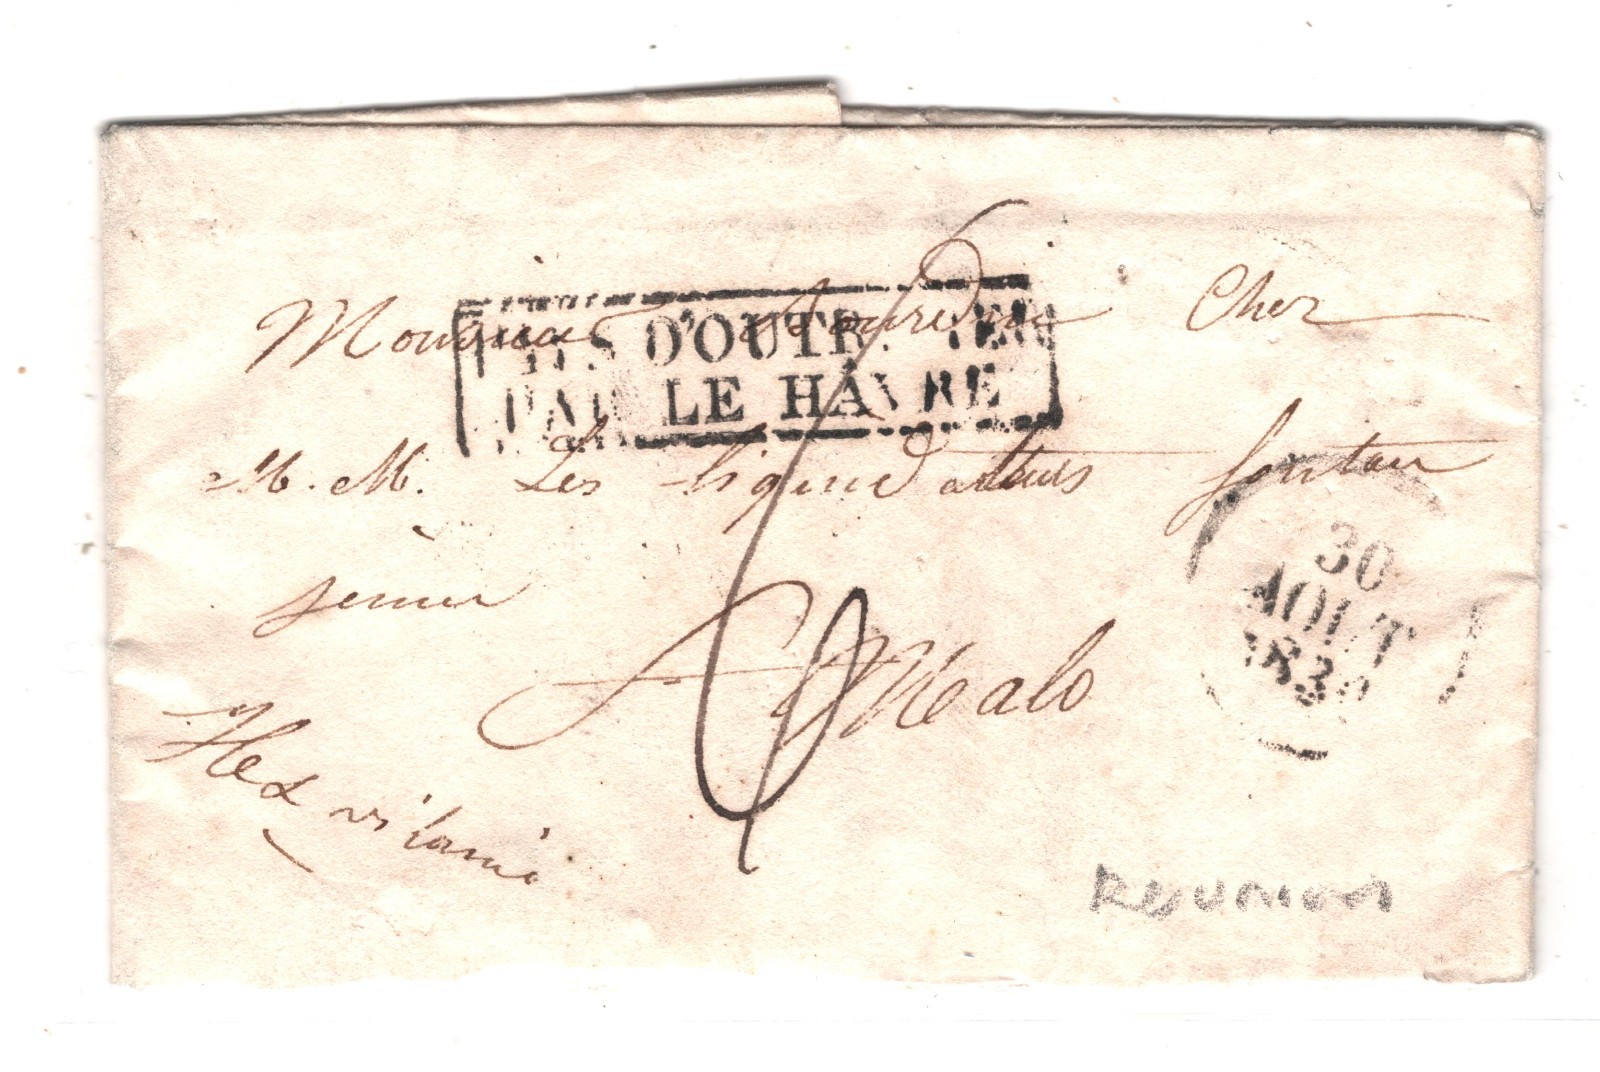 Monsieur Chez
D'OUTR
LE HAVRE
M. M. Les Liquidateurs fontan
senier
St Malo
Ile & vilaine
30
AOUT
183
REUNION